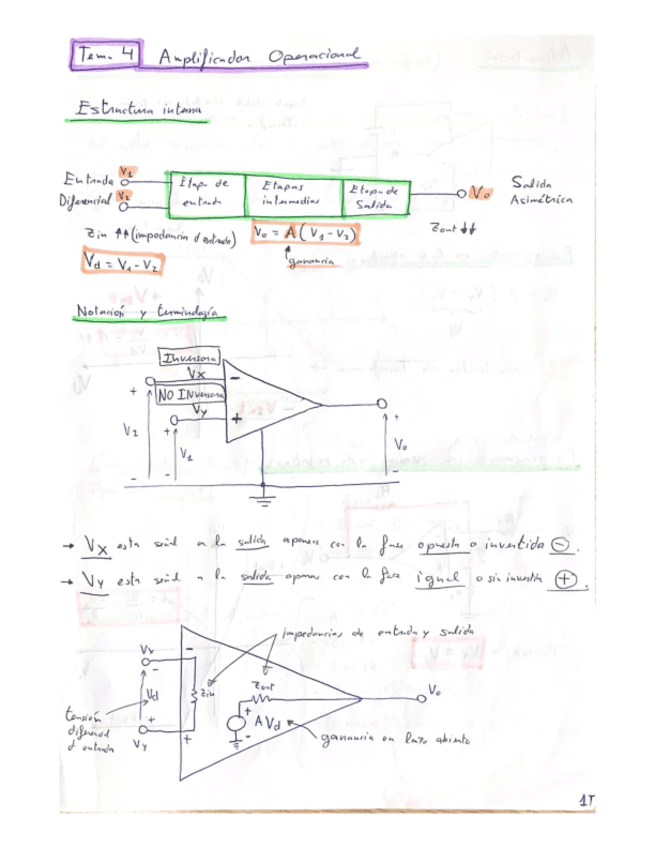 Tema 4 Amplificador Operacional
Estructura interna
Entrada Diferencial
V1
V2
Etapa de entrada
Etapas intermedias
Etapa de Salida
Vo
Salida Asimétrica
Zin ↑↑ (impedancia d entrada)
Vo = A (V1 - V2)
ganancia
Zout ↓↓
Vd = V1 - V2
Notación y terminología
Inversora
Vx
NO INVersora
Vy
-
+
V2
V1
Vo
→ Vx esta señal a la salida aparece con la fase opuesta o invertida ⊖.
→ Vy esta señal a la salida aparece con la fase igual o sin invertir ⊕.
impedancias de entrada y salida
Vx
Vd
Vy
Zin
Zout
AVd
Vo
tensión diferencial d entrada
ganancia en lazo abierto